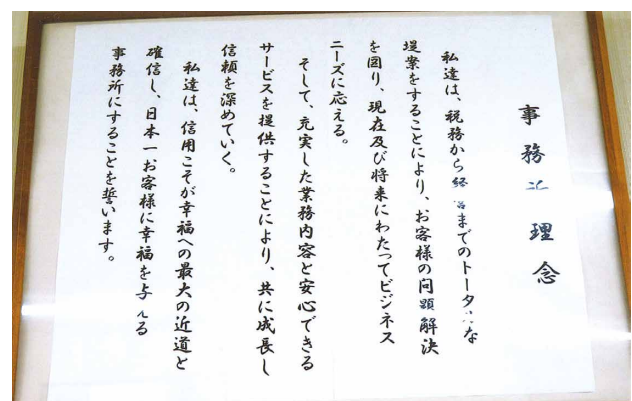 事務所理念
私達は、税務から経営までのトータルな
提案をすることにより、お客様の問題解決
を図り、現在及び将来にわたってビジネス
ニーズに応える。
そして、充実した業務内容と安心できる
サービスを提供することにより、共に成長し
信頼を深めていく。
私達は、信用こそが幸福への最大の近道と
確信し、日本一お客様に幸福を与える
事務所にすることを誓います。